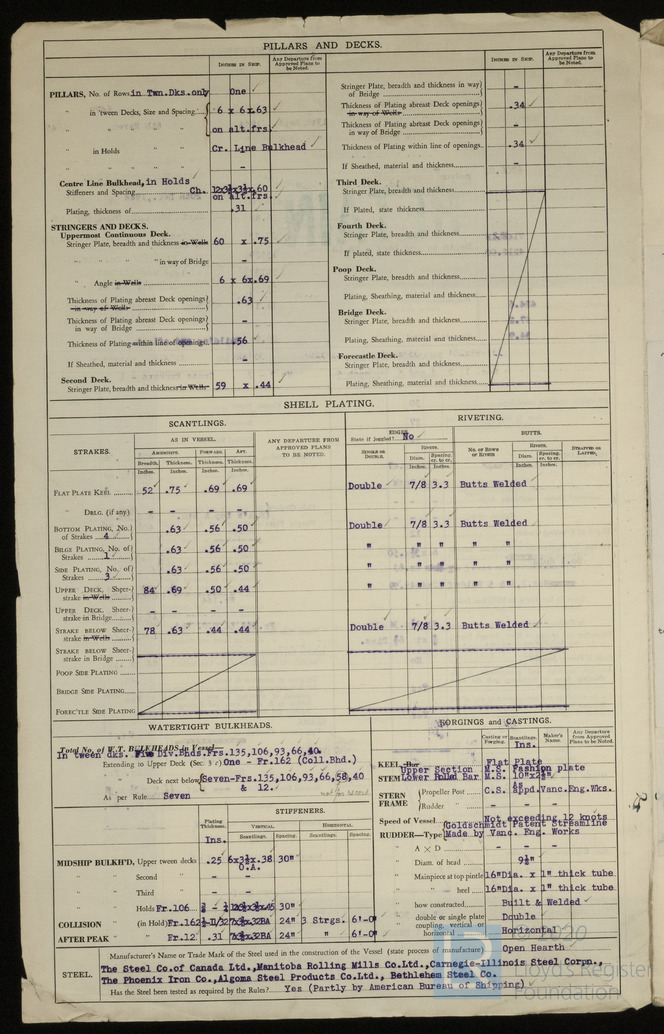 PILLARS AND DECKS.
INCHES IN SHIP.
Any Departure from Approved Plans to be Noted.
INCHES IN SHIP.
Any Departure from Approved Plans to be Noted.
PILLARS, No. of Rows in Twn.Dks.only One
" in 'tween Decks, Size and Spacing 6 x 6 x.63
" " on alt.frs.
" in Holds " " Cr. Line Bulkhead
" " " " -
Centre Line Bulkhead, in Holds
Stiffeners and Spacing Ch. on alt.frs.
Plating, thickness of .31
STRINGERS AND DECKS.
Uppermost Continuous Deck.
Stringer Plate, breadth and thickness in Wells 60 x .75
" " " " in way of Bridge -
" Angle in Wells 6 x 6x.69
Thickness of Plating abreast Deck openings in way of Wells .63
Thickness of Plating abreast Deck openings in way of Bridge -
Thickness of Plating within line of openings .56
If Sheathed, material and thickness -
Second Deck.
Stringer Plate, breadth and thickness in Wells 59 x .44
Stringer Plate, breadth and thickness in way of Bridge -
Thickness of Plating abreast Deck openings in way of Wells .34
Thickness of Plating abreast Deck openings in way of Bridge -
Thickness of Plating within line of openings .34
If Sheathed, material and thickness -
Third Deck.
Stringer Plate, breadth and thickness
If Plated, state thickness
Fourth Deck.
Stringer Plate, breadth and thickness
If plated, state thickness
Poop Deck.
Stringer Plate, breadth and thickness
Plating, Sheathing, material and thickness
Bridge Deck.
Stringer Plate, breadth and thickness
Plating, Sheathing, material and thickness
Forecastle Deck.
Stringer Plate, breadth and thickness
Plating, Sheathing, material and thickness
SHELL PLATING.
SCANTLINGS.
RIVETING.
STRAKES.
AS IN VESSEL.
ANY DEPARTURE FROM APPROVED PLANS TO BE NOTED.
EDGES.
State if joggled? No
BUTTS.
AMIDSHIPS. FORWARD. AFT.
Breadth. Thickness. Thickness. Thickness.
Inches. Inches. Inches. Inches.
SINGLE OR DOUBLE.
RIVETS.
Diam. Spacing cr. to cr.
Inches Inches
No. OF ROWS OF RIVETS
RIVETS.
Diam. Spacing cr. to cr.
Inches Inches
STRAPPED OR LAPPED.
FLAT PLATE KEEL 52 .75 .69 .69 Double 7/8 3.3 Butts Welded
DBLG. (if any) - - - -
BOTTOM PLATING, No. of Strakes 4 .63 .56 .50 Double 7/8 3.3 Butts Welded
BILGE PLATING, No. of Strakes 1 .63 .56 .50 " " " " "
SIDE PLATING, No. of Strakes 3 .63 .56 .50 " " " " "
UPPER DECK, Sheer-strake in Wells 84 .69 .50 .44 " " " " "
UPPER DECK, Sheer-strake in Bridge - - - -
STRAKE BELOW Sheer-strake in Wells 78 .63 .44 .44 Double 7/8 3.3 Butts Welded
STRAKE BELOW Sheer-strake in Bridge
POOP SIDE PLATING
BRIDGE SIDE PLATING
FOREC'TLE SIDE PLATING
WATERTIGHT BULKHEADS.
Total No. of W.T. BULKHEADS in Vessel—
In tween dks. Five Div.Bhds.Frs.135,106,93,66,40.
Extending to Upper Deck (Sec. 3 c) One - Fr.162 (Coll.Bhd.)
" Deck next below Seven-Frs.135,106,93,66,58,40
& 12.
As per Rule Seven
Plating Thickness.
STIFFENERS.
VERTICAL. HORIZONTAL.
Scantlings. Spacing. Scantlings. Spacing.
Ins.
MIDSHIP BULKH'D, Upper tween decks .25 6x3½x.38 30"
O.A.
" " Second " -
" " Third " -
" " Holds Fr.106 30"
COLLISION " (in Hold) Fr.162 24" 3 Strgs. 6'-0"
AFTER PEAK " " Fr.12 .31 24" " 6'-0"
FORGINGS and CASTINGS.
Casting or Forging.
Scantlings.
Maker's Name.
Any Departure from Approved Plans to be Noted.
Ins.
KEEL, Bar Flat Plate
Upper Section M.S. Fashion plate
STEM Lower Rolled Bar M.S. 10"x2½"
STERN FRAME
Propeller Post C.S. Appd. Vanc.Eng.Wks.
Rudder " -
Speed of Vessel Not exceeding 12 knots
Goldschmidt Patent Streamline
RUDDER—Type Made by Vanc. Eng. Works
" A × D -
" Diam. of head 9½"
" Mainpiece at top pintle 16"Dia. x 1" thick tube
" " heel 16"Dia. x 1" thick tube
" how constructed Built & Welded
" double or single plate Double
" coupling, vertical or horizontal Horizontal
STEEL.
Manufacturer's Name or Trade Mark of the Steel used in the construction of the Vessel (state process of manufacture) Open Hearth
The Steel Co.of Canada Ltd.,Manitoba Rolling Mills Co.Ltd.,Carnegie-Illinois Steel Corpn.,
The Phoenix Iron Co.,Algoma Steel Products Co.Ltd., Bethlehem Steel Co.
Has the Steel been tested as required by the Rules? Yes (Partly by American Bureau of Shipping)
2020
Lloyd's Register
Foundation